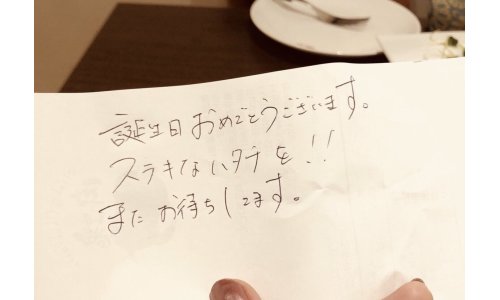 誕生日おめでとうございます。
ステキなハタチを!!
またお待ちしてます。